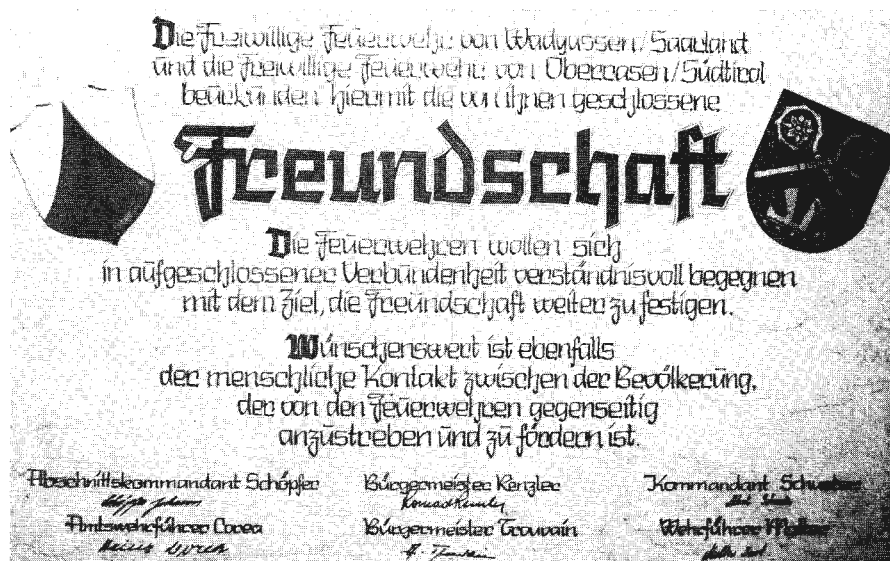 Die Freiwillige Feuerwehr von Wadgassen/Saarland
und die Freiwillige Feuerwehr von Oberrasen/Südtirol
beurkunden hiermit die von ihnen geschlossene
Freundschaft
Die Feuerwehren wollen sich
in aufgeschlossener Verbundenheit verständnisvoll begegnen
mit dem Ziel, die Freundschaft weiter zu festigen.
Wünschenswert ist ebenfalls
der menschliche Kontakt zwischen der Bevölkerung,
der von den Feuerwehren gegenseitig
anzustreben und zu fördern ist.
Abschnittskommandant Schöpfer Bürgermeister Renzler Kommandant Schuster
Amtswehrführer Correa Bürgermeister Trouvain Wehrführer